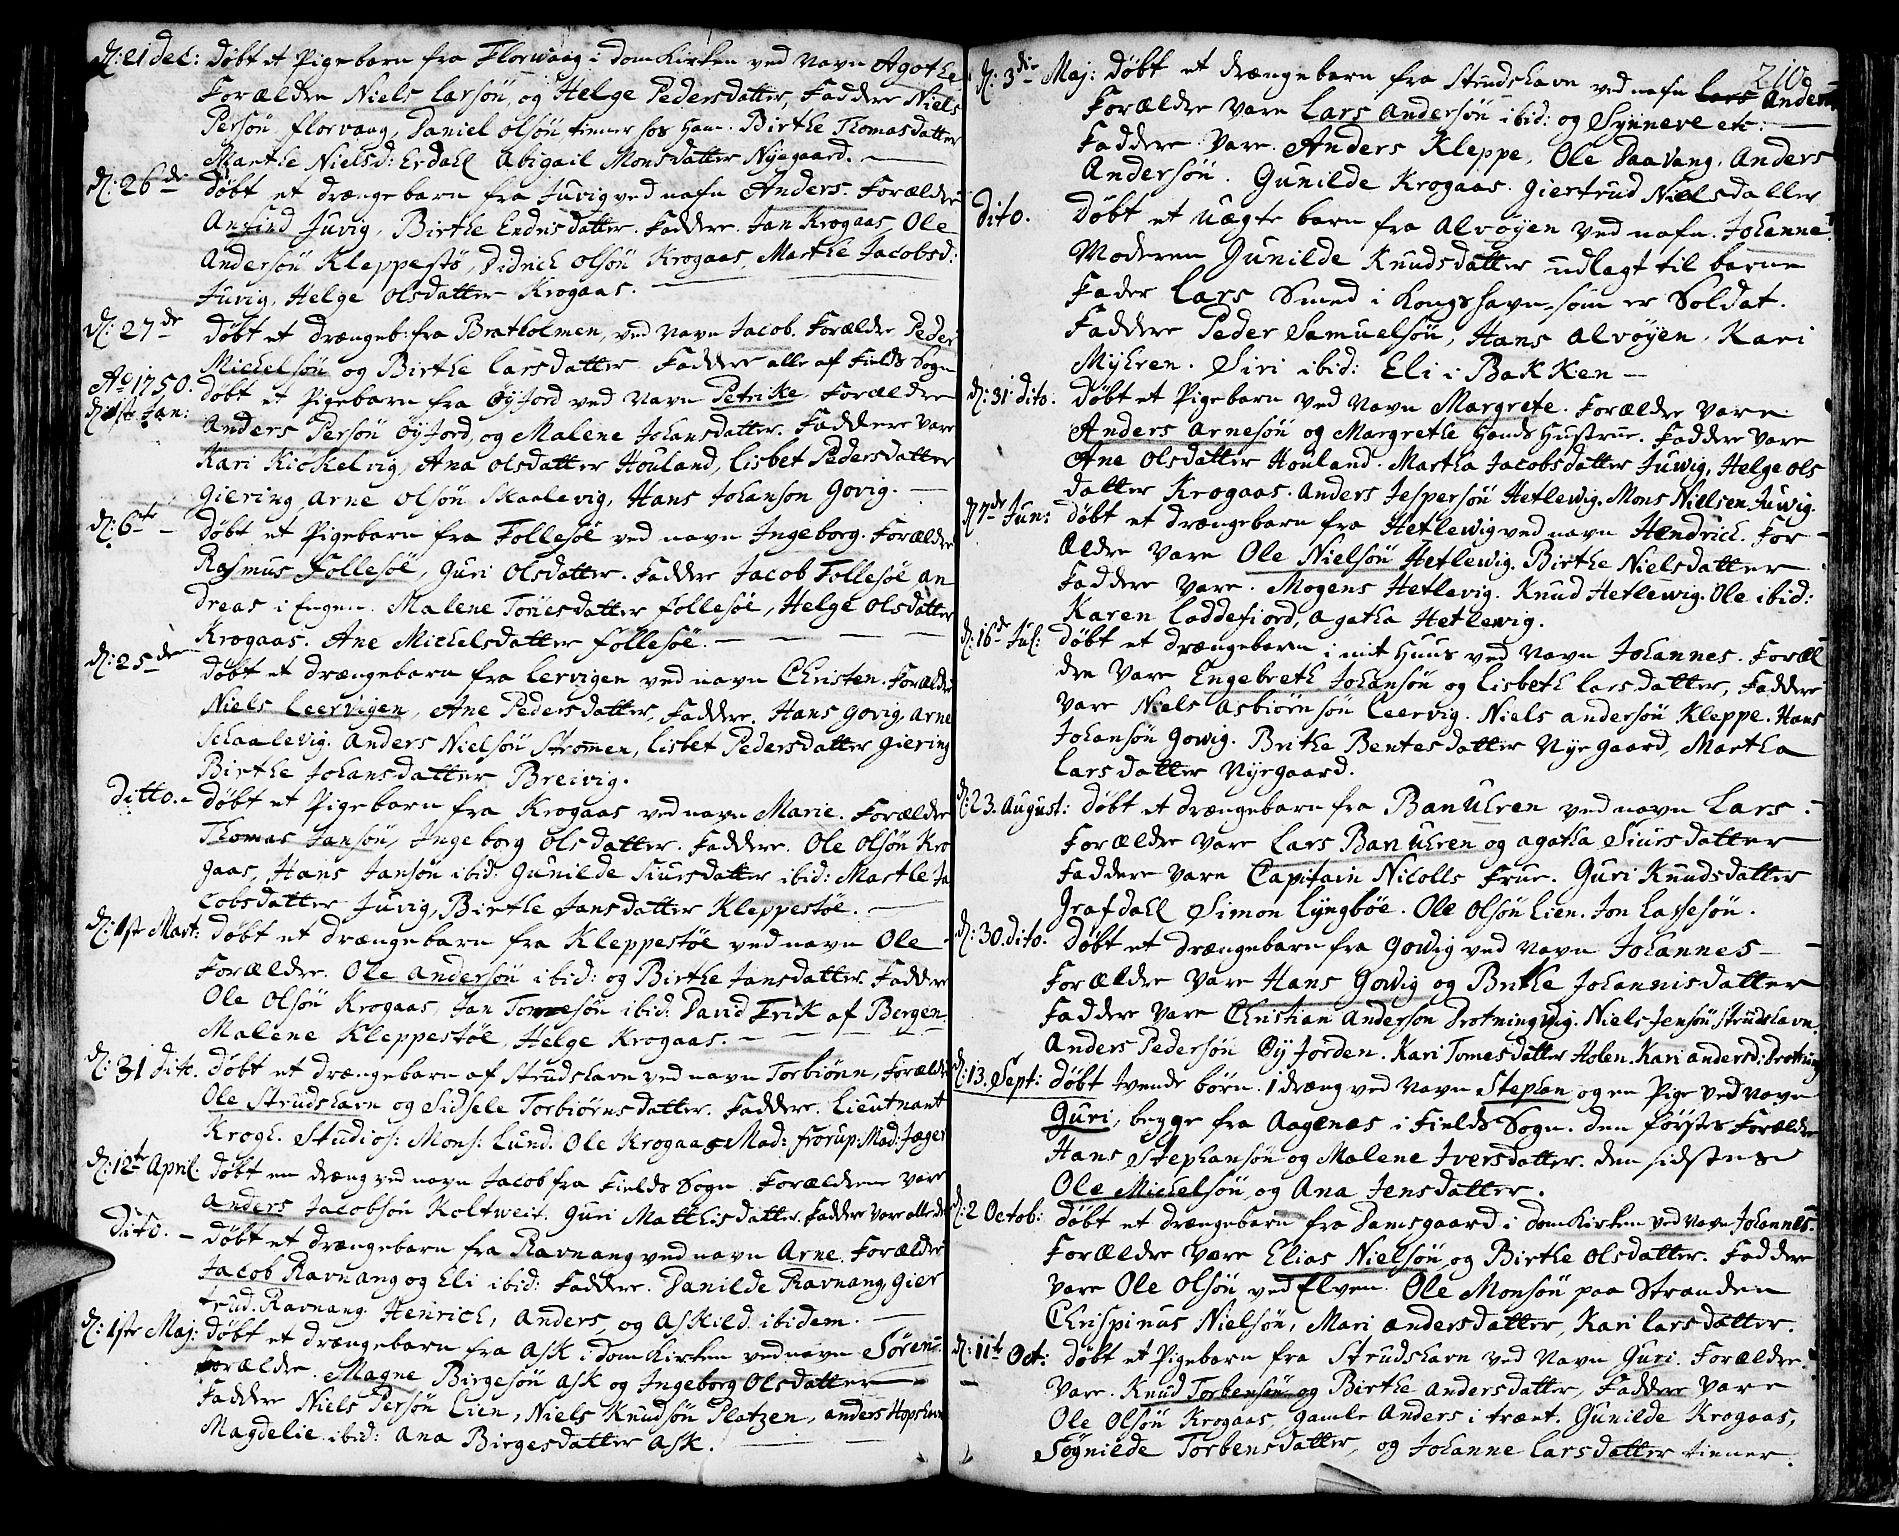 d: 21 dec: døbt et Pigebarn fra Florwaag i domkirken ved Navn Agothe
Forældre Niels Larsøn, og Helge Pedersdatter, Faddere Niels
Persøn florvaag, Daniel olsøn tienner hos ham. Birthe Thomasdatter
Marthe Nielsd: Erdahl Abigail Monsdatter Nyegaard.
d: 26de døbt et drængebarn fra Juvig ved nafn Anders. Forældre
Anfind Juvig, Birthe Endresdatter. Faddere. Jan Krogaas, Ole
Andersøn Kleppestø, Didrich olsøn Krogaas, Marthe Jacobsd:
Juvig, Helge olsdatter Krogaas.
d: 27de døbt et drængeb: fra Bratholmen, ved Navn Jacob. Forældre Peder
Michelsøn og Birthe Larsdatter Faddere alle af Fields Sogn
Ao 1750. døbt et Pigebarn fra Øyjord ved Navn Petrike. Forældre
d: 1ste Jan: Anders Persøn Øyjord, og Malene Johansdatter. Faddere vare
Kari Kiökelvig, Ana olsdatter Houland, Lisbet Pedersdatter
Giering, Arne olsøn Skaalevig, Hans Johanson Govig.
d: 6te døbt et Pigebarn fra Follesöe ved navn Ingeborg. Forældre
Rasmus Follesöe, Guri olsdatter. Faddere Jacob Follesöe An
dreas i Engen. Malene Tomesdatter follesöe, Helge olsdatter
Krogaas. Ane Michelsdatter follesöe.
d: 25de døbt et drængebarn fra Lervigen ved navn Christen. Forældre
Niels Leervigen, Ane Pedersdatter, Faddere. Hans Govig, Arne
Schaalevig. Anders Nielsøn Strømen, Lisbet Pedersdatter Giering
Birthe Johansdatter Breivig.
Ditto. døbt et Pigebarn fra Krogaas ved navn Marie. Forældre
Thomas Jansøn, Ingeborg olsdatter. Faddere. Ole olsøn Kro
gaas, Hans Jansøn ibid: Gunilde Siursdatter ibid: Marthe Ja
cobsdatter Juvig, Birthe Jansdatter Kleppestøe.
d: 1ste Mart: døbt et drængebarn fra Kleppestøe ved navn Ole
Forældre. Ole Andersøn ibid: og Birthe Jansdatter. Faddere
Ole olsøn Krogaas, Jan Tomesøn ibid: David Frik af Bergen.
Malene Kleppestøe, Helge Krogaas.
d: 31 dito. døbt et drængebarn af Strudshavn ved navn Torbiörn, Forældre
Ole Strudshavn og Sidsele Torbiørnsdatter. Faddere. Lieutnant
Krogh. Studios: Mons: Lund. Ole Krogaas Mad: Frorup. Mad: Jæger
d: 12te April. døbt en dræng ved navn Jacob fra Fields Sogn Forældrene vare
Anders Jacobsøn Koltweit. Guri Matthisdatter. Faddere vare alle der
Dito. døbt et drængebarn fra Ravnang ved navn Arne. Forældre
Jacob Ravnang og Eli ibid: Faddere. Danilde Ravnang, Gier
trud. Ravnang Henrich, Anders og Askild ibidem.
d: 1ste Maj: døbt et drængebarn fra Ask i domkirken ved navn Søren
Forældre. Magne Birgesøn Ask og Ingeborg Olsdatter
Faddere Niels Persøn Lien, Niels Knudsøn Platzen, anders Hopshavn
Magdelie ibid: Ana Birgesdatter Ask.
210
d: 3die Maj: døbt et drængebarn fra Strudshavn ved nafn Lars Anders
Forældre vare Lars Andersøn ibid: og Synneve etc:
Faddere vare Anders Kleppe, Ole Daavang, Anders
Andersøn. Gunilde Krogaas. Giertrud Nielsdatter
Dito. døbt et uægte barn fra Alvøyen ved nafn Johanne.
Moderen Gunilde Knudsdatter udlagt til barne
Fader Lars Smed i Kongshavn som er Soldat.
Faddere Peder Samuelsøn, Hans Alvøyen, Kari
Myhren. Siri ibid: Eli i Bakken
d: 31 dito. døbt et Pigebarn ved Navn Margrete. Forældre vare
Anders Arnesøn og Margrethe hands Hustrue. Faddere vare
Ane olsdatter Houland. Martha Jacobsdatter Juwig, Helge ols
datter Krogaas. Anders Jespersøn Hetlewig. Mons Nielsen Juwig.
d: 7de Jun: døbt et drængebarn fra Hetlewig ved navn Hendrich. For
ældre vare Ole Nielsøn Hetlewig. Birthe Nielsdatter
Faddere vare. Mogens Hetlevig. Knud Hetlewig. Ole ibid:
Karen Laddefiord, Agatha Hetlewig.
d: 16de Jul: døbt et drængebarn i mit Huus ved Navn Johannes. Foræl
dre vare Engebreth Johansøn og Lisbeth Larsdatter, Faddere
vare Niels Asbiørnsøn Leervig. Niels andersøn Kleppe. Hans
Johansøn Gowig. Brithe Bentesdatter Nyegaard, Martha
Larsdatter Nyegaard.
d: 23. August: døbt et drængebarn fra Banuhren ved navn Lars
Forældre vare Lars Banuhren og agatha Siursdatter
Faddere vare Capitain Nicolls Frue. Guri Knudsdatter
Grafdahl Simon Lyngbøe. Ole Olsøn Lien. Jon Lassesøn.
d: 30. dito. døbt et drængebarn fra Gowig ved Navn Johannes
Forældre vare Hans Gowig og Brithe Johannisdatter
Faddere vare Christian Anderson Drotningvig. Niels Jensøn Strudshavn
Anders Pedersøn Øyjorden. Kari Tomesdatter Holen. Kari andersd: Drotning
d: 13. Sept: døbt tvende børn. 1 dræng ved Navn Stephan og en Pige ved Navn
Guri, begge fra Aagenæs i Fields Sogn. den førstes Forældre
Hans Stephansøn og Malene Iversdatter. den sidstnes
Ole Michelsøn, og Ana Jensdatter.
d: 2 Octob: døbt et drængebarn fra Damsgaard i domkirken ved Navn Johannes
Forældre være Elias Nielsøn og Birthe olsdatter. Faddere
vare Ole olsøn ved Elven. Ole Monsøn paa Stranden
Chrispinus Nielsøn, Mari andersdatter, Kari Larsdatter.
d: 11te Oct: døbt et Pigebarn fra Strudshavn ved Navn Guri. Forældre
vare. Knud Torbensøn og Birthe Andersdatter, Faddere vare
Ole olsøn Krogaas, gamle Anders i trænt. Gunilde Krogaas,
Søgnilde Torbensdatter, og Johanne Larsdatter tienner.